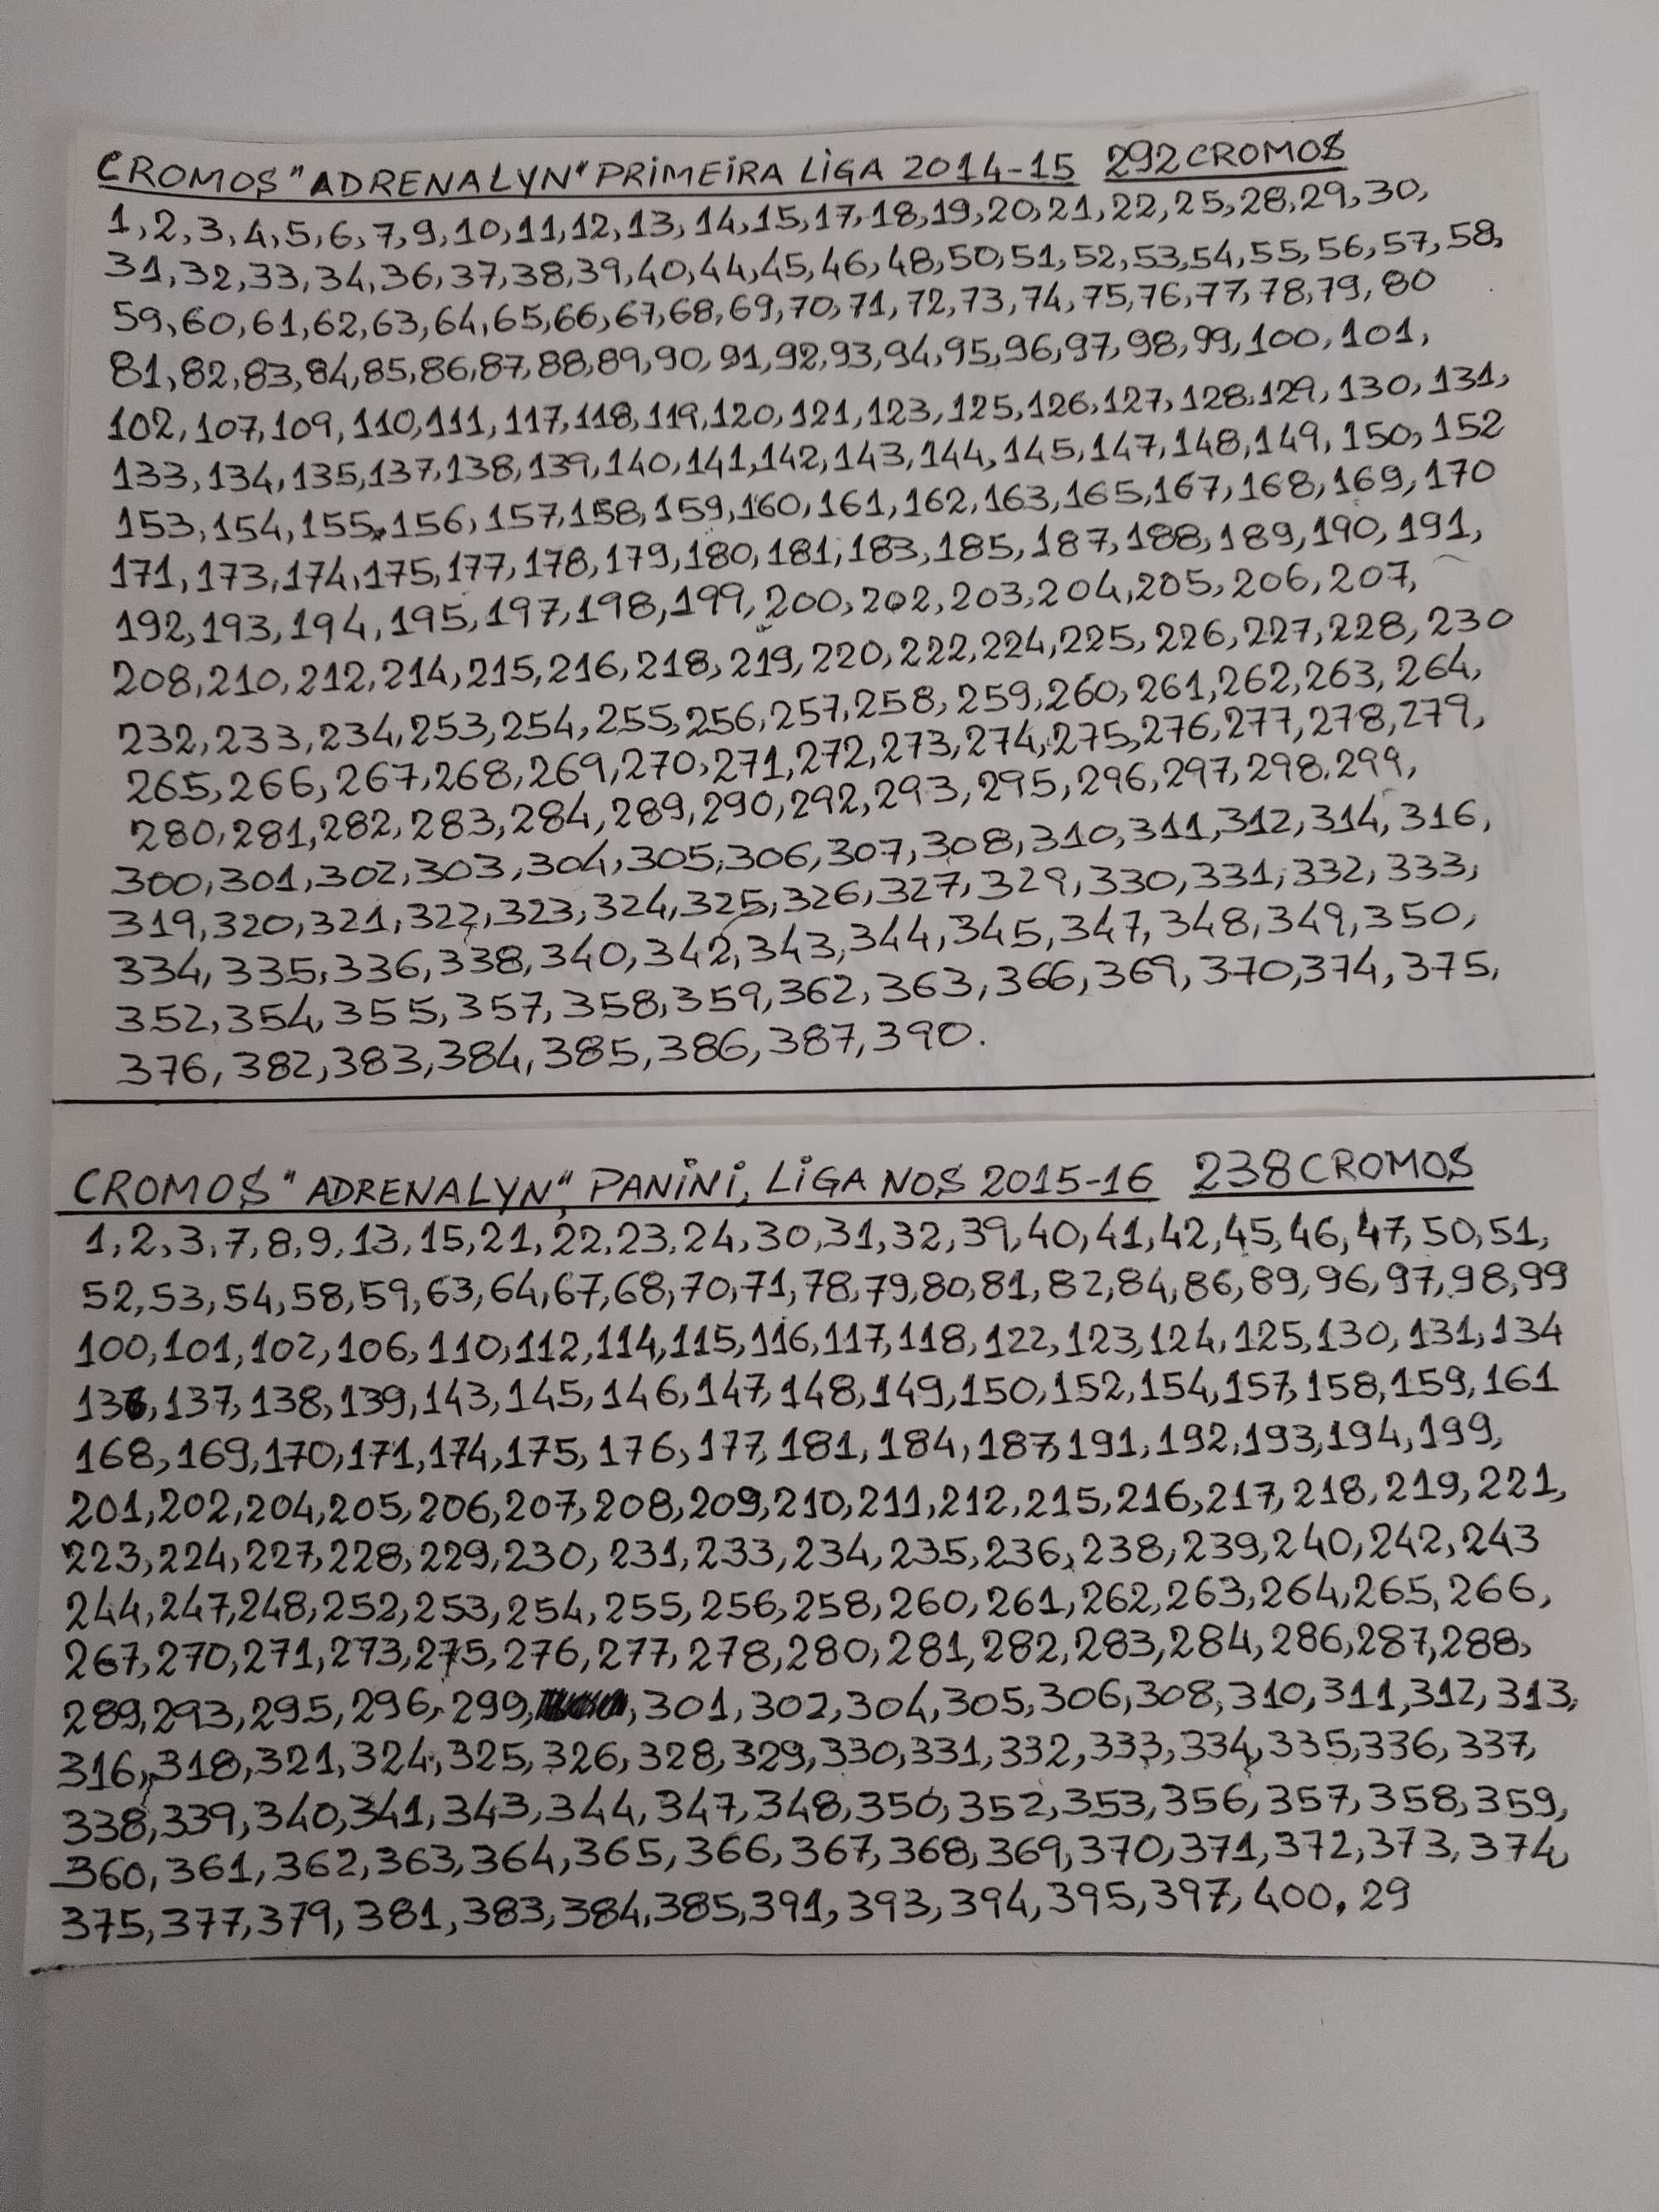 CROMOS "ADRENALYN" PRIMEIRA LIGA 2014-15 292 CROMOS
1,2,3,4,5,6,7,9,10,11,12,13,14,15,17,18,19,20,21,22,25,28,29,30,
31,32,33,34,36,37,38,39,40,44,45,46,48,50,51,52,53,54,55,56,57,58,
59,60,61,62,63,64,65,66,67,68,69,70,71,72,73,74,75,76,77,78,79,80
81,82,83,84,85,86,87,88,89,90,91,92,93,94,95,96,97,98,99,100,101,
102,107,109,110,111,117,118,119,120,121,123,125,126,127,128,129,130,131,
133,134,135,137,138,139,140,141,142,143,144,145,147,148,149,150,152
153,154,155,156,157,158,159,160,161,162,163,165,167,168,169,170
171,173,174,175,177,178,179,180,181,183,185,187,188,189,190,191,
192,193,194,195,197,198,199,200,202,203,204,205,206,207,
208,210,212,214,215,216,218,219,220,222,224,225,226,227,228,230
232,233,234,253,254,255,256,257,258,259,260,261,262,263,264,
265,266,267,268,269,270,271,272,273,274,275,276,277,278,279,
280,281,282,283,284,289,290,292,293,295,296,297,298,299,
300,301,302,303,304,305,306,307,308,310,311,312,314,316,
319,320,321,322,323,324,325,326,327,329,330,331,332,333,
334,335,336,338,340,342,343,344,345,347,348,349,350,
352,354,355,357,358,359,362,363,366,369,370,374,375,
376,382,383,384,385,386,387,390.
CROMOS "ADRENALYN", PANINI, LIGA NOS 2015-16 238 CROMOS
1,2,3,7,8,9,13,15,21,22,23,24,30,31,32,39,40,41,42,45,46,47,50,51,
52,53,54,58,59,63,64,67,68,70,71,78,79,80,81,82,84,86,89,96,97,98,99
100,101,102,106,110,112,114,115,116,117,118,122,123,124,125,130,131,134
136,137,138,139,143,145,146,147,148,149,150,152,154,157,158,159,161
168,169,170,171,174,175,176,177,181,184,187,191,192,193,194,199,
201,202,204,205,206,207,208,209,210,211,212,215,216,217,218,219,221,
223,224,227,228,229,230,231,233,234,235,236,238,239,240,242,243
244,247,248,252,253,254,255,256,258,260,261,262,263,264,265,266,
267,270,271,273,275,276,277,278,280,281,282,283,284,286,287,288,
289,293,295,296,299,301,302,304,305,306,308,310,311,312,313,
316,318,321,324,325,326,328,329,330,331,332,333,334,335,336,337,
338,339,340,341,343,344,347,348,350,352,353,356,357,358,359,
360,361,362,363,364,365,366,367,368,369,370,371,372,373,374,
375,377,379,381,383,384,385,391,393,394,395,397,400,29